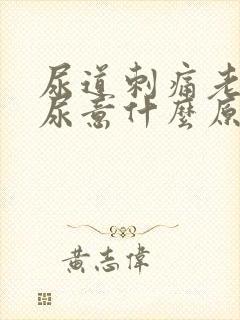 尿道刺痛老
尿意什麼原
黃志偉